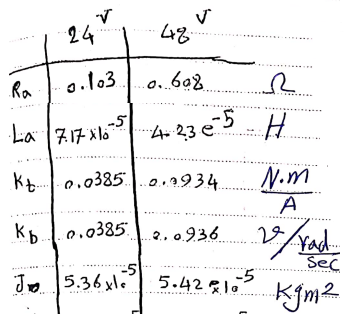 24 v 48 v
Ra 0.103 0.608 Ω
La 7.17 x10^-5 4.23 e^-5 H
Kt 0.0385 0.0934 N.m/A
Kb 0.0385 0.0936 v/rad/sec
J 5.36 x10^-5 5.42 x10^-5 Kgm²